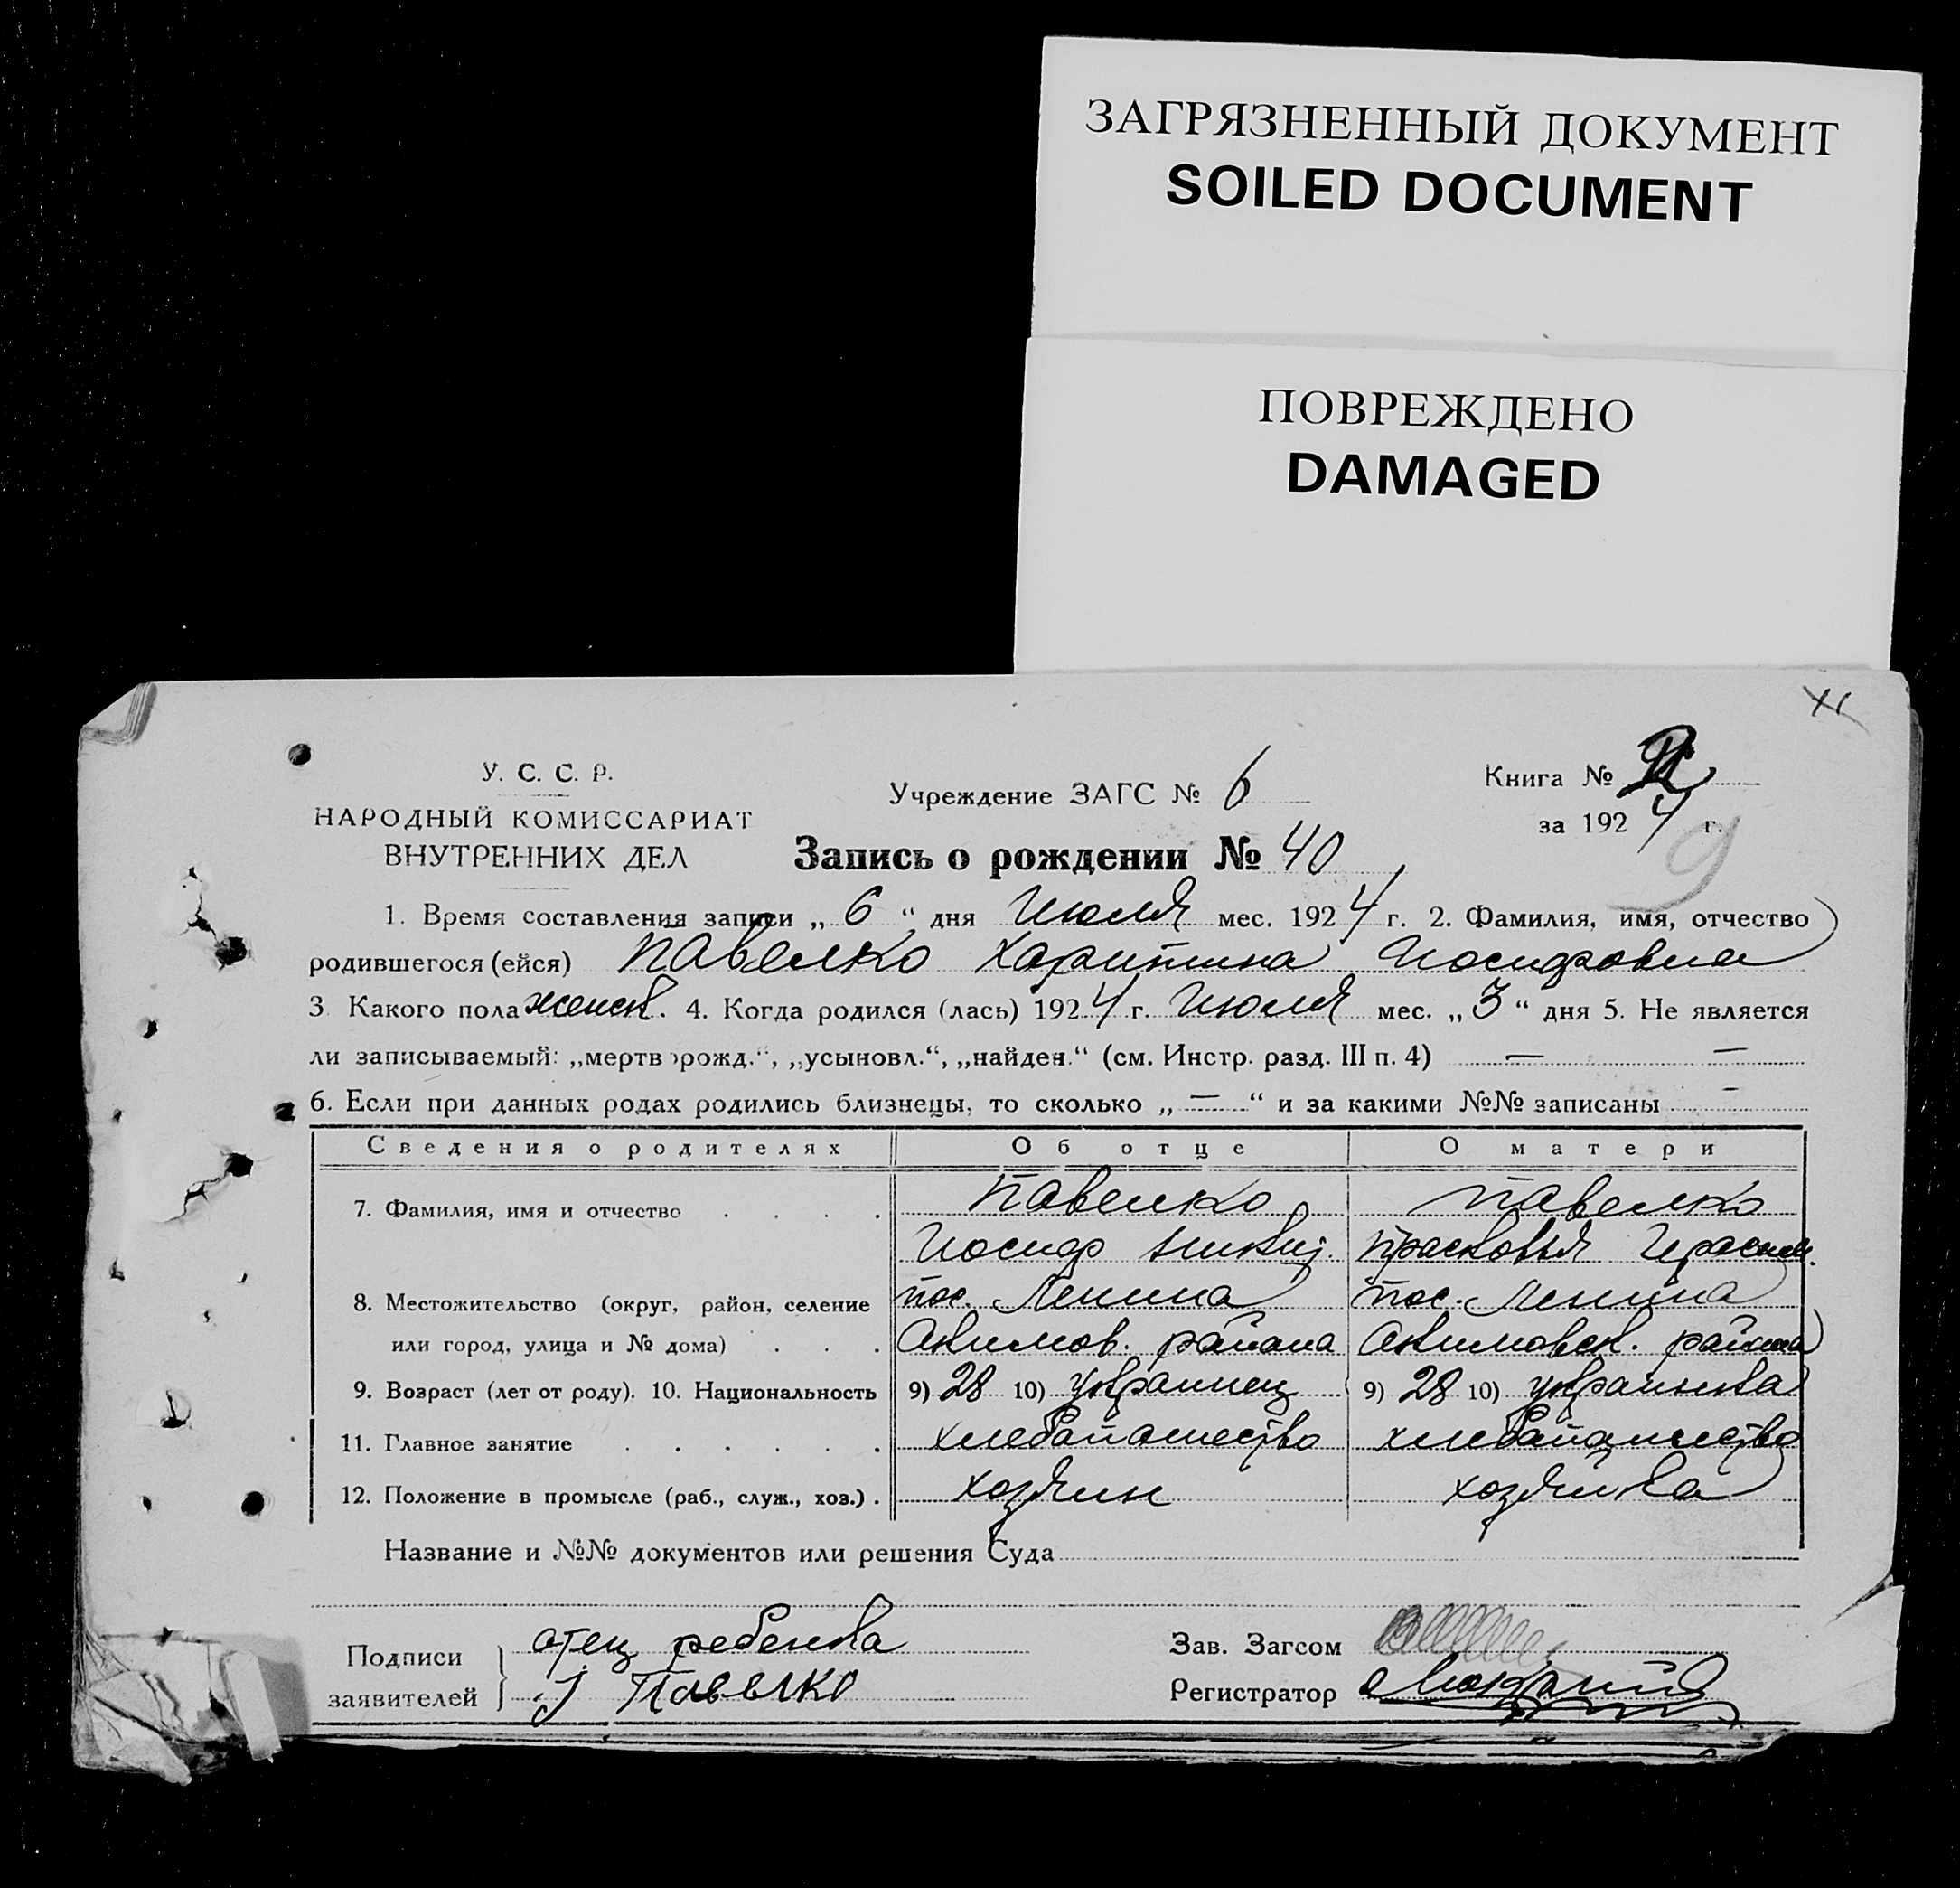 ЗАГРЯЗНЕННЫЙ ДОКУМЕНТ
SOILED DOCUMENT
ПОВРЕЖДЕНО
DAMAGED
У. С. С. Р.
НАРОДНЫЙ КОМИССАРИАТ
ВНУТРЕННИХ ДЕЛ
Учреждение ЗАГС № 6
Книга №
за 1924 г.
9
Запись о рождении № 40
1. Время составления записи „ 6 “ дня Июля мес. 1924 г. 2. Фамилия, имя, отчество
родившегося (ейся) Павелко Харитина Иосифовна
3 Какого пола женск. 4. Когда родился (лась) 1924 г. Июля мес. „ 3 “ дня 5. Не является
ли записываемый: „мертворожд.“, „усыновл.“, „найден.“ (см. Инстр. разд. III п. 4) — —
6. Если при данных родах родились близнецы, то сколько „ — “ и за какими №№ записаны —
Сведения о родителях Об отце О матери
7. Фамилия, имя и отчество Павелко Павелко
Иосиф Прасковья Герасим.
8. Местожительство (округ, район, селение пос. Ленина пос. Ленина
или город, улица и № дома) Акимов. района Акимовск. района
9. Возраст (лет от роду). 10. Национальность 9) 28 10) украинец 9) 28 10) украинка
11. Главное занятие хлебопашество хлебопашество
12. Положение в промысле (раб., служ., хоз.) . хозяин хозяйка
Название и №№ документов или решения Суда
Подписи заявителей
отец ребенка
Павелко
Зав. Загсом
Регистратор